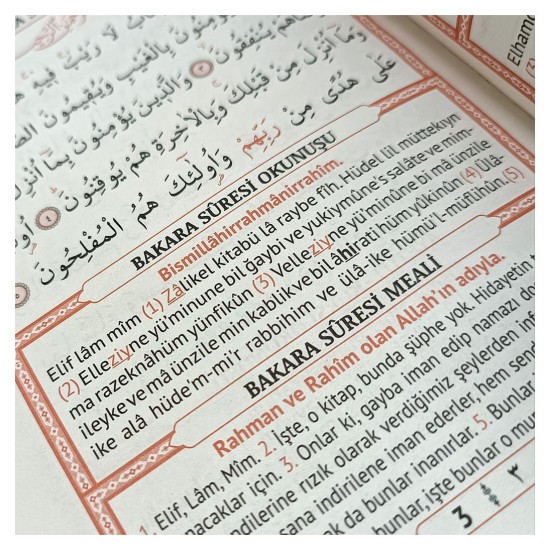 لَا رَيْبَ فِيهِ
يُؤْمِنُونَ بِالْغَيْبِ وَيُقِيمُونَ
يُنْفِقُونَ ٣ وَالَّذِينَ يُؤْمِنُونَ بِمَا أُنْزِلَ
وَمَا أُنْزِلَ مِنْ قَبْلِكَ وَبِالْآخِرَةِ هُمْ يُوقِنُونَ ٤
عَلَى هُدًى مِنْ رَبِّهِمْ وَأُولَئِكَ هُمُ الْمُفْلِحُونَ
Elham
BAKARA SÛRESİ OKUNUŞU
Bismillâhirrahmânirrahîm.
Elif lâm mîm (1) Zâlikel kitabü lâ raybe fîh. Hüdel lil müttekıyn
(2) Elleziyne yü'minune bil ğaybi ve yukiymûne's salâte ve mim-
ma razeknâhüm yünfikûn (3) Velleziyne yü'minûne bi mâ ünzile
ileyke ve mâ ünzile min kablik ve bil âhirati hüm yûkinûn (4) Ülâ-
ike alâ hüde'm-mi'r rabbihim ve ülâ-ike hümü'l-müflihûn. (5)
BAKARA SÛRESİ MEALİ
Rahman ve Rahîm olan Allah'ın adıyla.
1. Elif, Lâm, Mîm. 2. İşte, o kitap, bunda şüphe yok. Hidayetin
nacaklar için. 3. Onlar ki, gayba iman edip namazı
ndilerine rızık olarak verdiğimiz şeylerden
sana indirilene iman ederler, hem
ak da bunlar inanırlar. 5. Bunlar
bunlar, işte bunlar o
3 ٣